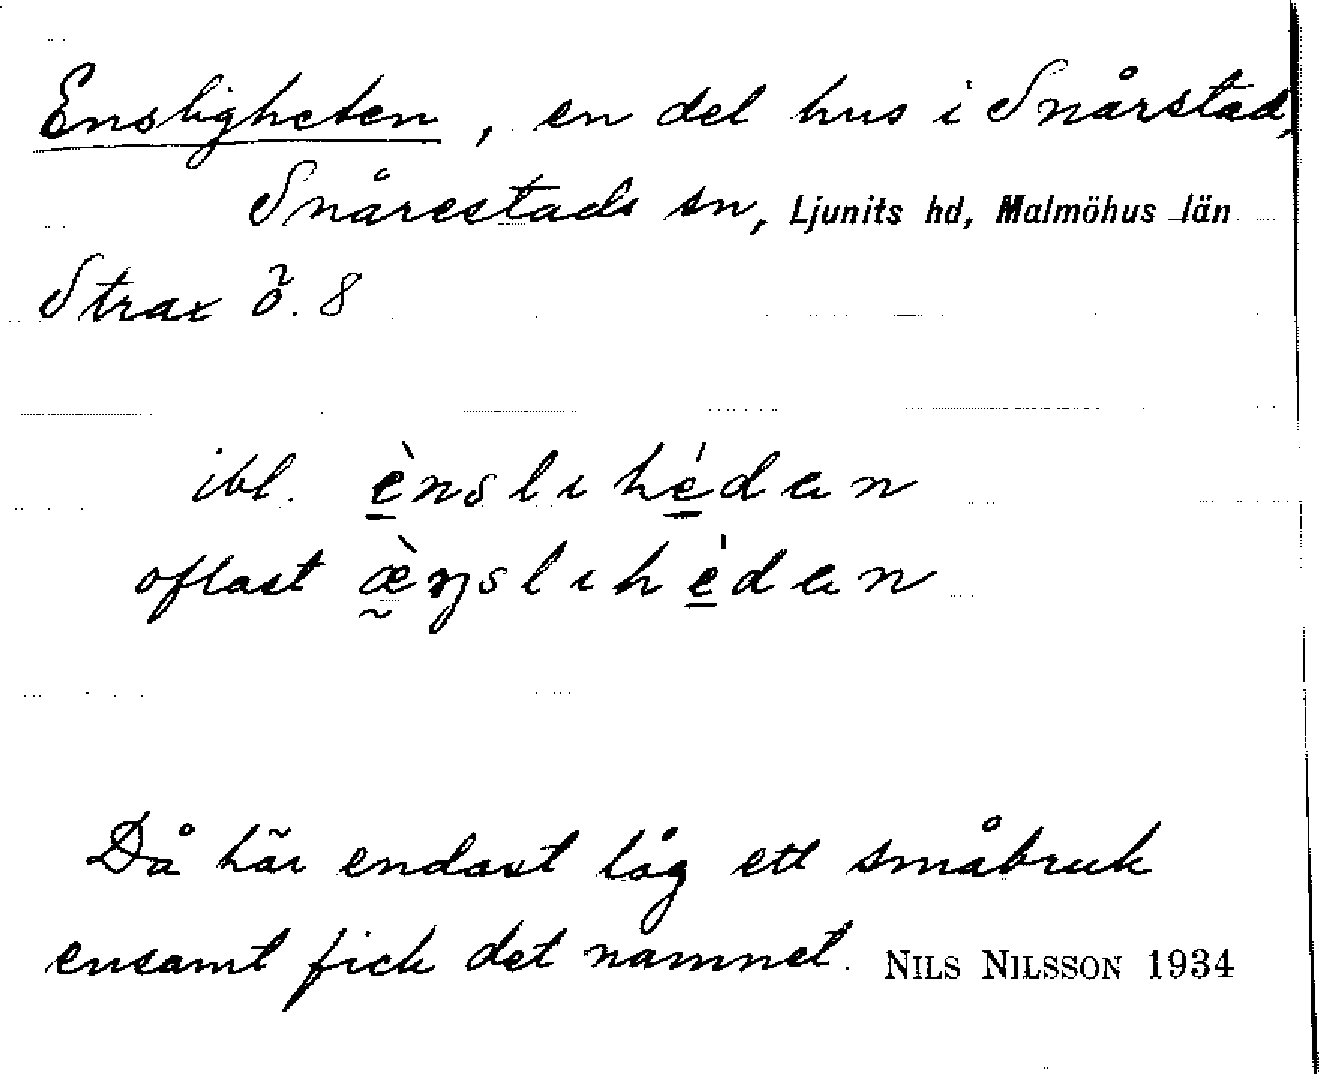 Ensligheten, en del hus i Snårstad,
Snårestads sn, Ljunits hd, Malmöhus län
Strax ö. 8
ibl. è̠nslıhé̠dan
oftast æ̰̀ŋslıhé̠dan
Då här endast låg ett småbruk
ensamt fick det namnet. NILS NILSSON 1934